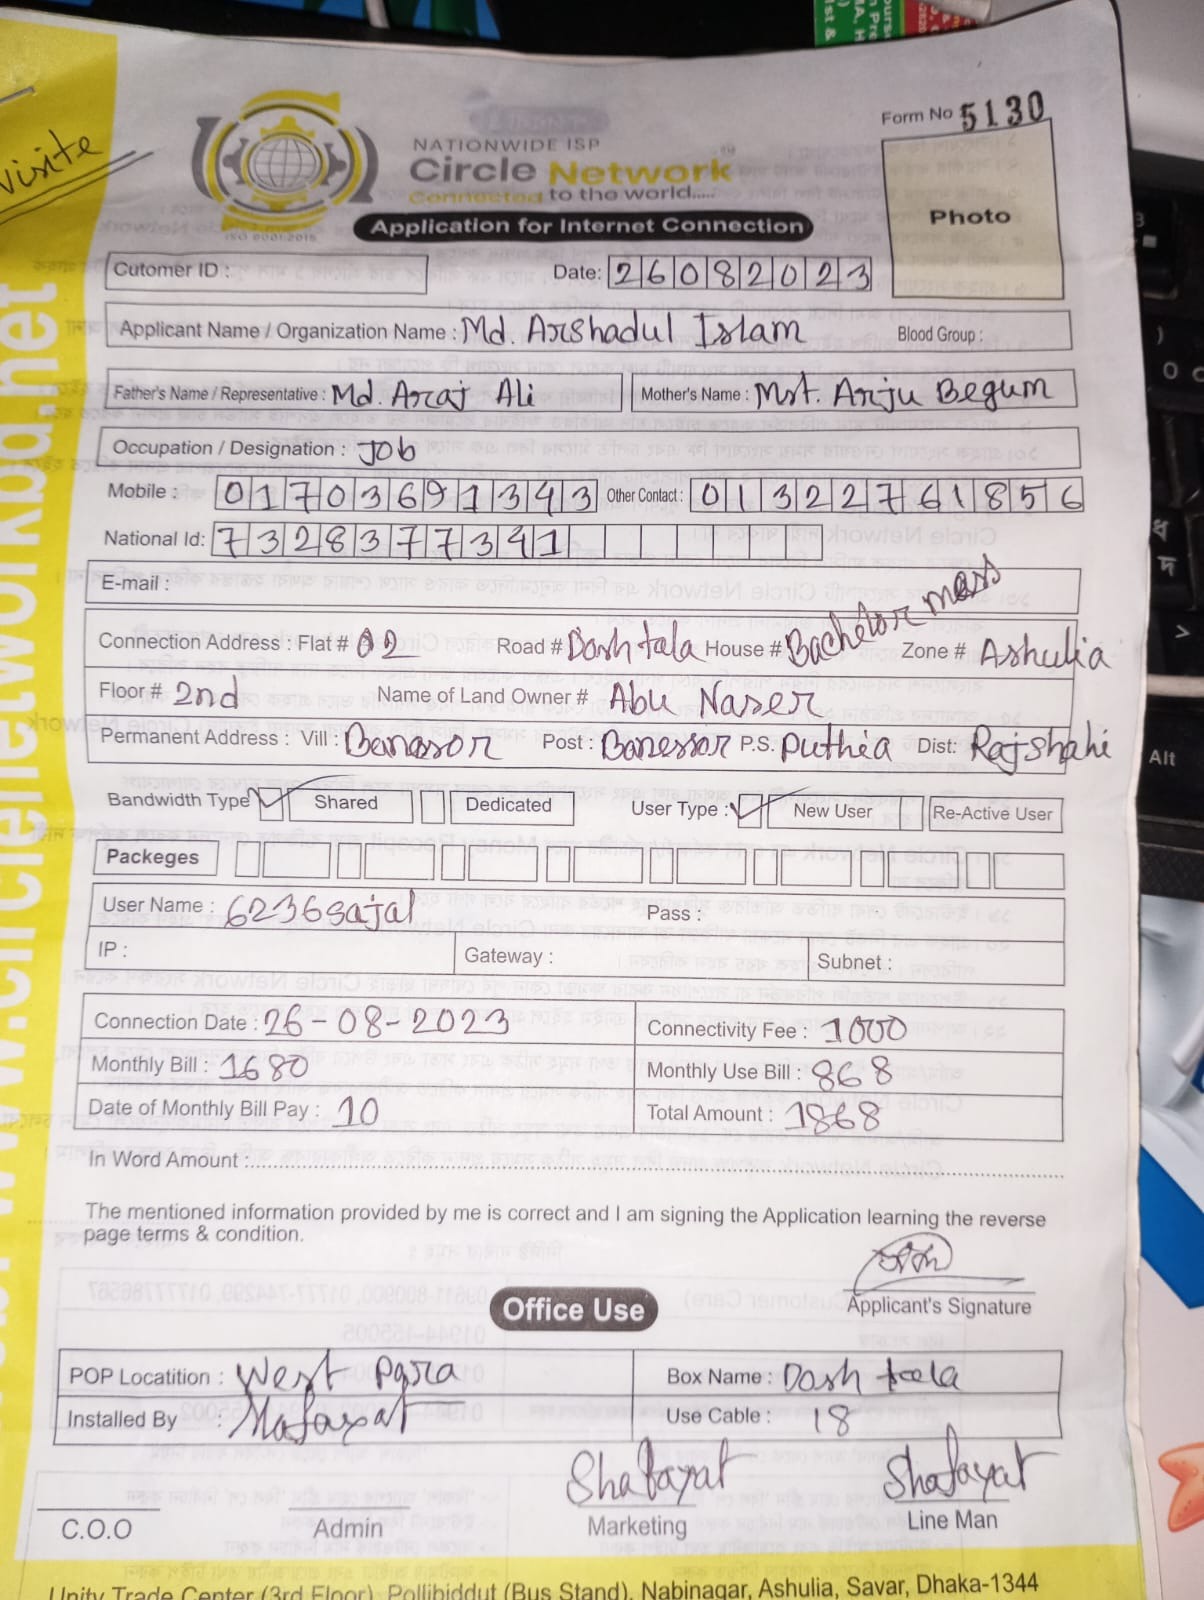 Form No 5130
visite
NATIONWIDE ISP
Circle Network
Connected to the world.....
ISO 9001:2015
Application for Internet Connection
Photo
Cutomer ID :
Date: 26082023
Applicant Name / Organization Name : Md. Arshadul Islam Blood Group :
Father's Name / Representative : Md. Araj Ali Mother's Name : Mst. Anju Begum
Occupation / Designation : Job
Mobile : 01703691343 Other Contact : 01322761856
National Id: 7328377341
E-mail :
Connection Address : Flat # 02 Road # Dosh tala House # Bachelor mess Zone # Ashulia
Floor # 2nd Name of Land Owner # Abu Naser
Permanent Address : Vill : Banasor Post : Banessor P.S. Puthia Dist: Rajshahi
Bandwidth Type Shared Dedicated User Type : New User Re-Active User
Packeges
User Name : 6236sajal Pass :
IP : Gateway : Subnet :
Connection Date : 26-08-2023 Connectivity Fee : 1000
Monthly Bill : 1680 Monthly Use Bill : 868
Date of Monthly Bill Pay : 10 Total Amount : 1868
In Word Amount :
The mentioned information provided by me is correct and I am signing the Application learning the reverse
page terms & condition.
Applicant's Signature
Office Use
POP Locatition : West para Box Name : Dosh tala
Installed By : Use Cable : 18
Shafayat Shafayat
C.O.O Admin Marketing Line Man
Unity Trade Center (3rd Floor), Pollibiddut (Bus Stand), Nabinagar, Ashulia, Savar, Dhaka-1344
www.circlenetworkbd.net
Alt